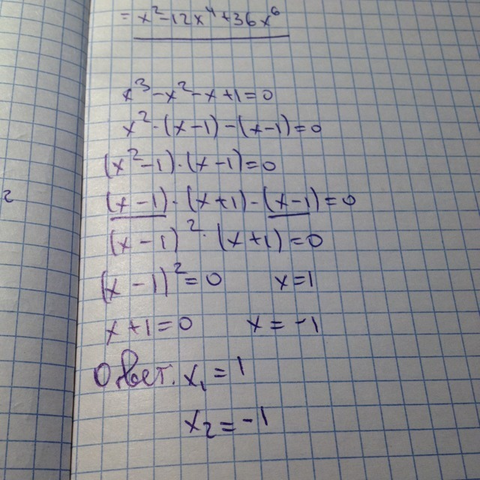 = x² - 12x⁴ + 36x⁶
x³ - x² - x + 1 = 0
x² · (x - 1) - (x - 1) = 0
(x² - 1) · (x - 1) = 0
(x - 1) · (x + 1) - (x - 1) = 0
(x - 1)² · (x + 1) = 0
(x - 1)² = 0 x = 1
x + 1 = 0 x = -1
Ответ. x₁ = 1
x₂ = -1